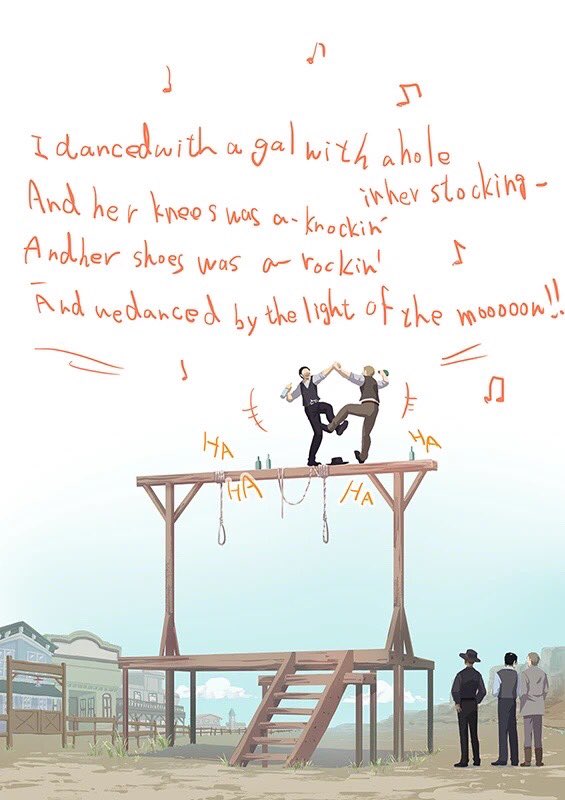 I danced with a gal with a hole
in her stocking-
And her knees was a-knockin'
And her shoes was a-rockin'
And we danced by the light of the mooooon!!
HA
HA
HA
HA